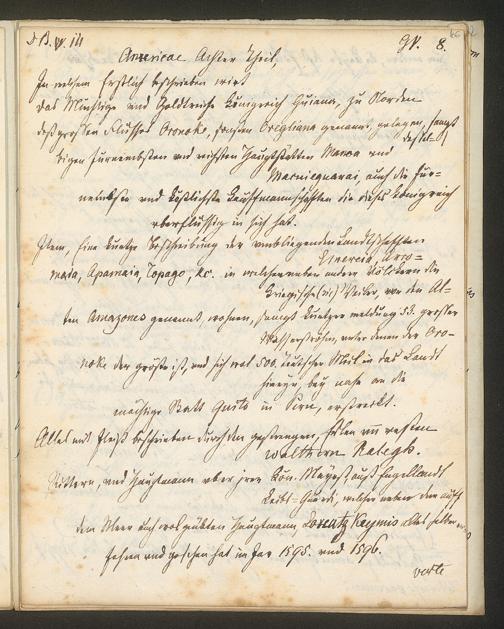 Americae Achter Theil,
In welchem Erstlich beschrieben wirt
das Mächtige und Goldtreiche Königreich Guiana, zu Norden
deß grossen Flusses Oronoke, sonsten Oregliana genannt, gelegen, sampt
desselbigen fürnembsten und reichsten Hauptstetten Manoa und
Macuieguarai, auch die für-
nembste und köstlichste Kauffmannschafften die dieses Königreich
uberflüssig in sich hat.
Item, Eine kurtze Beschreibung der umbliegenden Landtschafften
Emereia, Arro-
maia, Amapaia, Topago, &c. in welchen neben andern Völckern die
Kriegische (sic) Weiber, von den Al-
ten Amazones genannt, wohnen, sampt kurtzer meldung 53. grosser
Wasserströhm, unter denen der Oro-
noke der gröste ist, und sich wol 500. Teutscher Meil in das Landt
hineyn, bey nahe an die
mächtige Statt Quito in Peru, erstreckt.
Alles mit Fleiß beschrieben durch den gestrengen, Edlen und vesten
Walthern Ralegh.
Rittern, und Hauptmann uber jrer Kön. Mayest. auß Engellandt
Leibs-Guardi, welcher neben dem auff
dem Meer auch wol geübten Hauptmann Lorentz Keymis alles selbst
gesehen hat im Jar 1595. und 1596.
verte